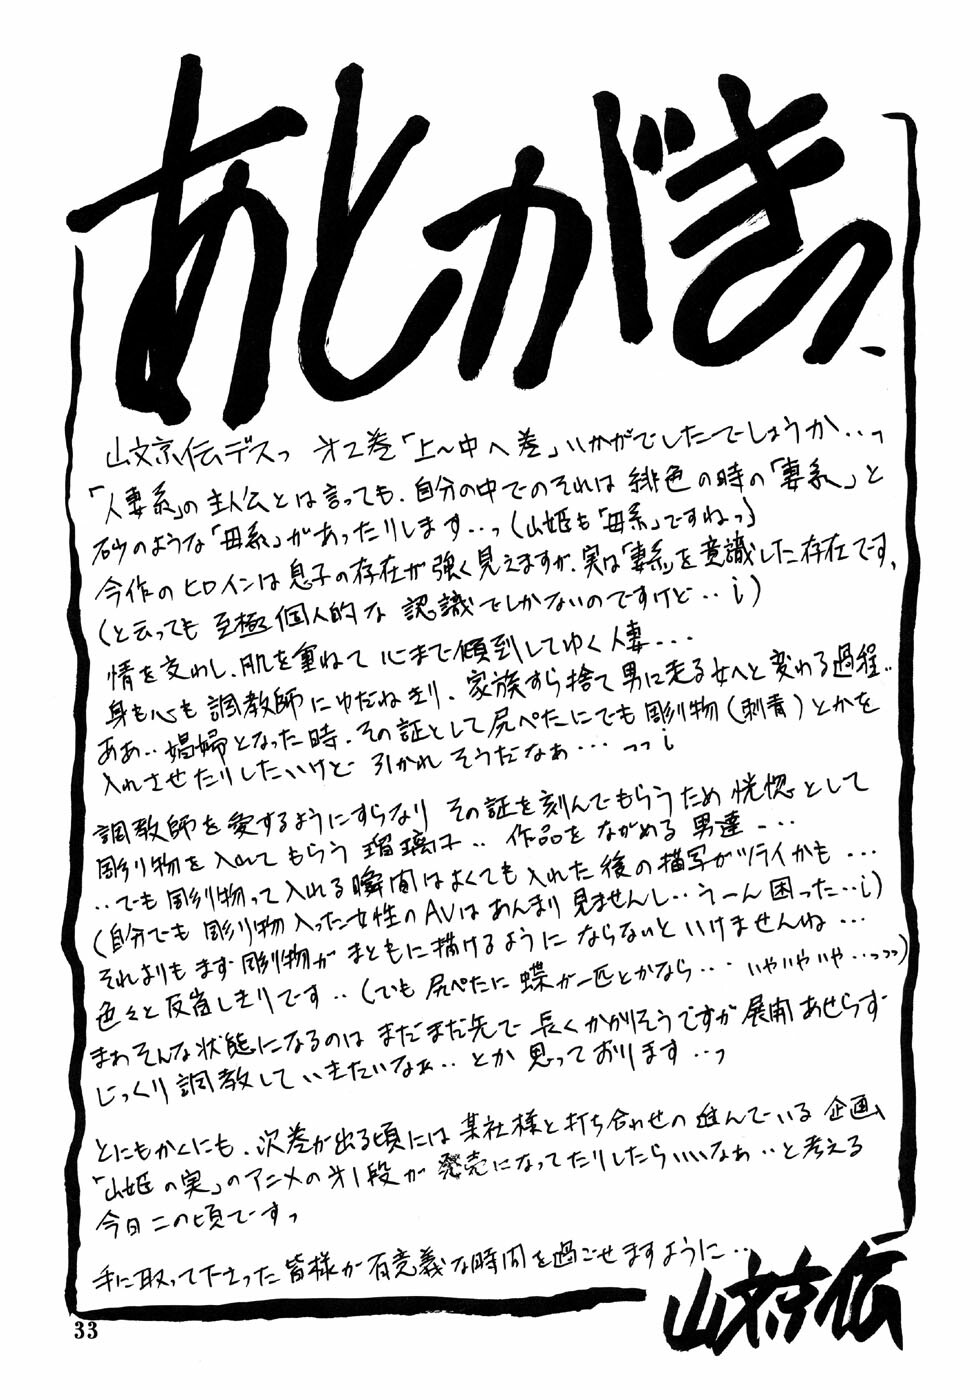 あとがきっ
山文京伝デスっ 第2巻「上〜中へ巻」いかがでしたでしょうか‥っ
「人妻系」の主人公とは言っても、自分の中でのそれは緋色の時の「妻系」と
砂のような「母系」があったりします‥っ(山姫も「母系」ですねっ)
今作のヒロインは息子の存在が強く見えますが、実は「妻系」を意識した存在です、
(と云っても至極個人的な認識でしかないのですけど‥i)
情を交わし、肌を重ねて心まで傾倒してゆく人妻‥‥
身も心も調教師にゆだねきり、家族すら捨て男に走る女へと変わる過程‥
ああ‥娼婦となった時、その証として尻ぺたにでも彫り物(刺青)とかを
入れさせたりしたいけど引かれそうだなぁ‥‥っっi
調教師を愛するようにすらなり その証を刻んでもらうため恍惚として
彫り物を入れてもらう瑠璃子‥作品をながめる男達‥‥
‥でも彫り物って入れる瞬間はよくても入れた後の描写がツライかも‥‥
(自分でも彫り物入った女性のAVはあんまり見ませんし‥うーん困った‥i)
それよりもまず彫り物がまともに描けるようにならないといけませんね‥‥
色々と反省しきりです‥(でも尻ぺたに蝶が一匹とかなら‥‥いやいやいや‥っっっ)
まぁそんな状態になるのはまだまだ先で長くかかりそうですが展開あせらず
じっくり調教していきたいなぁ‥とか思っております‥っ
とにもかくにも、次巻が出る頃には某社様と打ち合わせの進んでいる企画
「山姫の実」のアニメの第1段が発売になってたりしたらいいなぁ‥と考える
今日この頃ですっ
手に取って下さった皆様が有意義な時間を過ごせますように‥
山文京伝
33